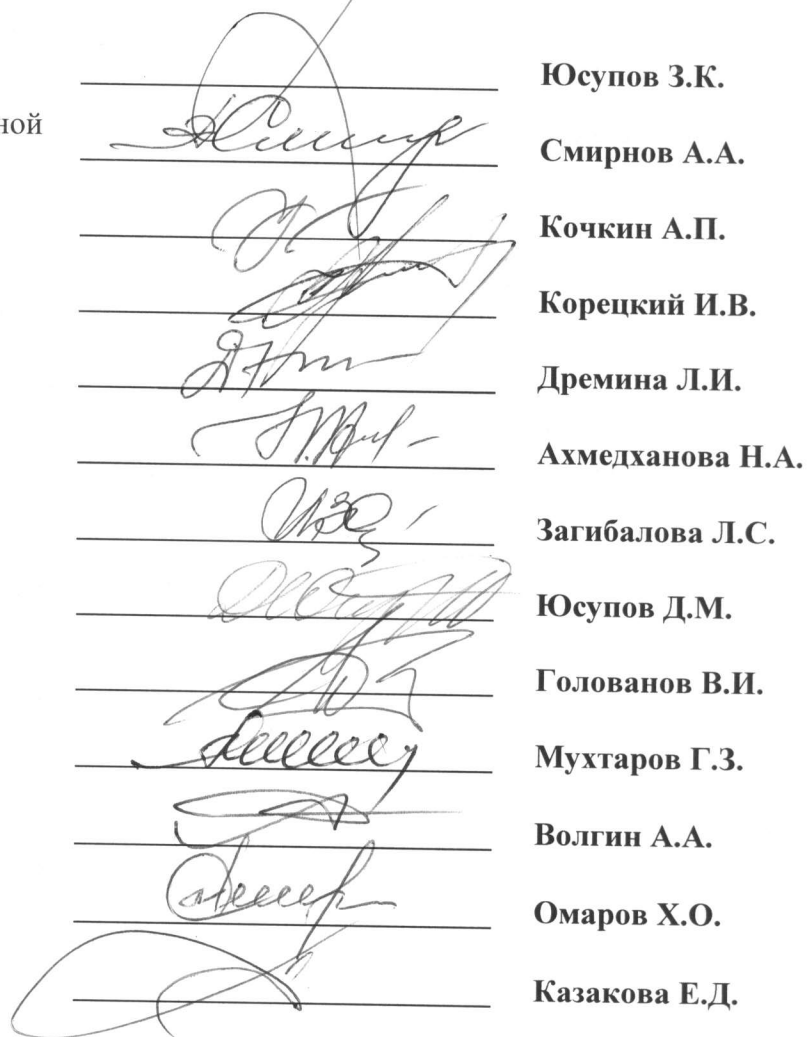 Юсупов З.К.
ной
Смирнов А.А.
Кочкин А.П.
Корецкий И.В.
Дремина Л.И.
Ахмедханова Н.А.
Загибалова Л.С.
Юсупов Д.М.
Голованов В.И.
Мухтаров Г.З.
Волгин А.А.
Омаров Х.О.
Казакова Е.Д.